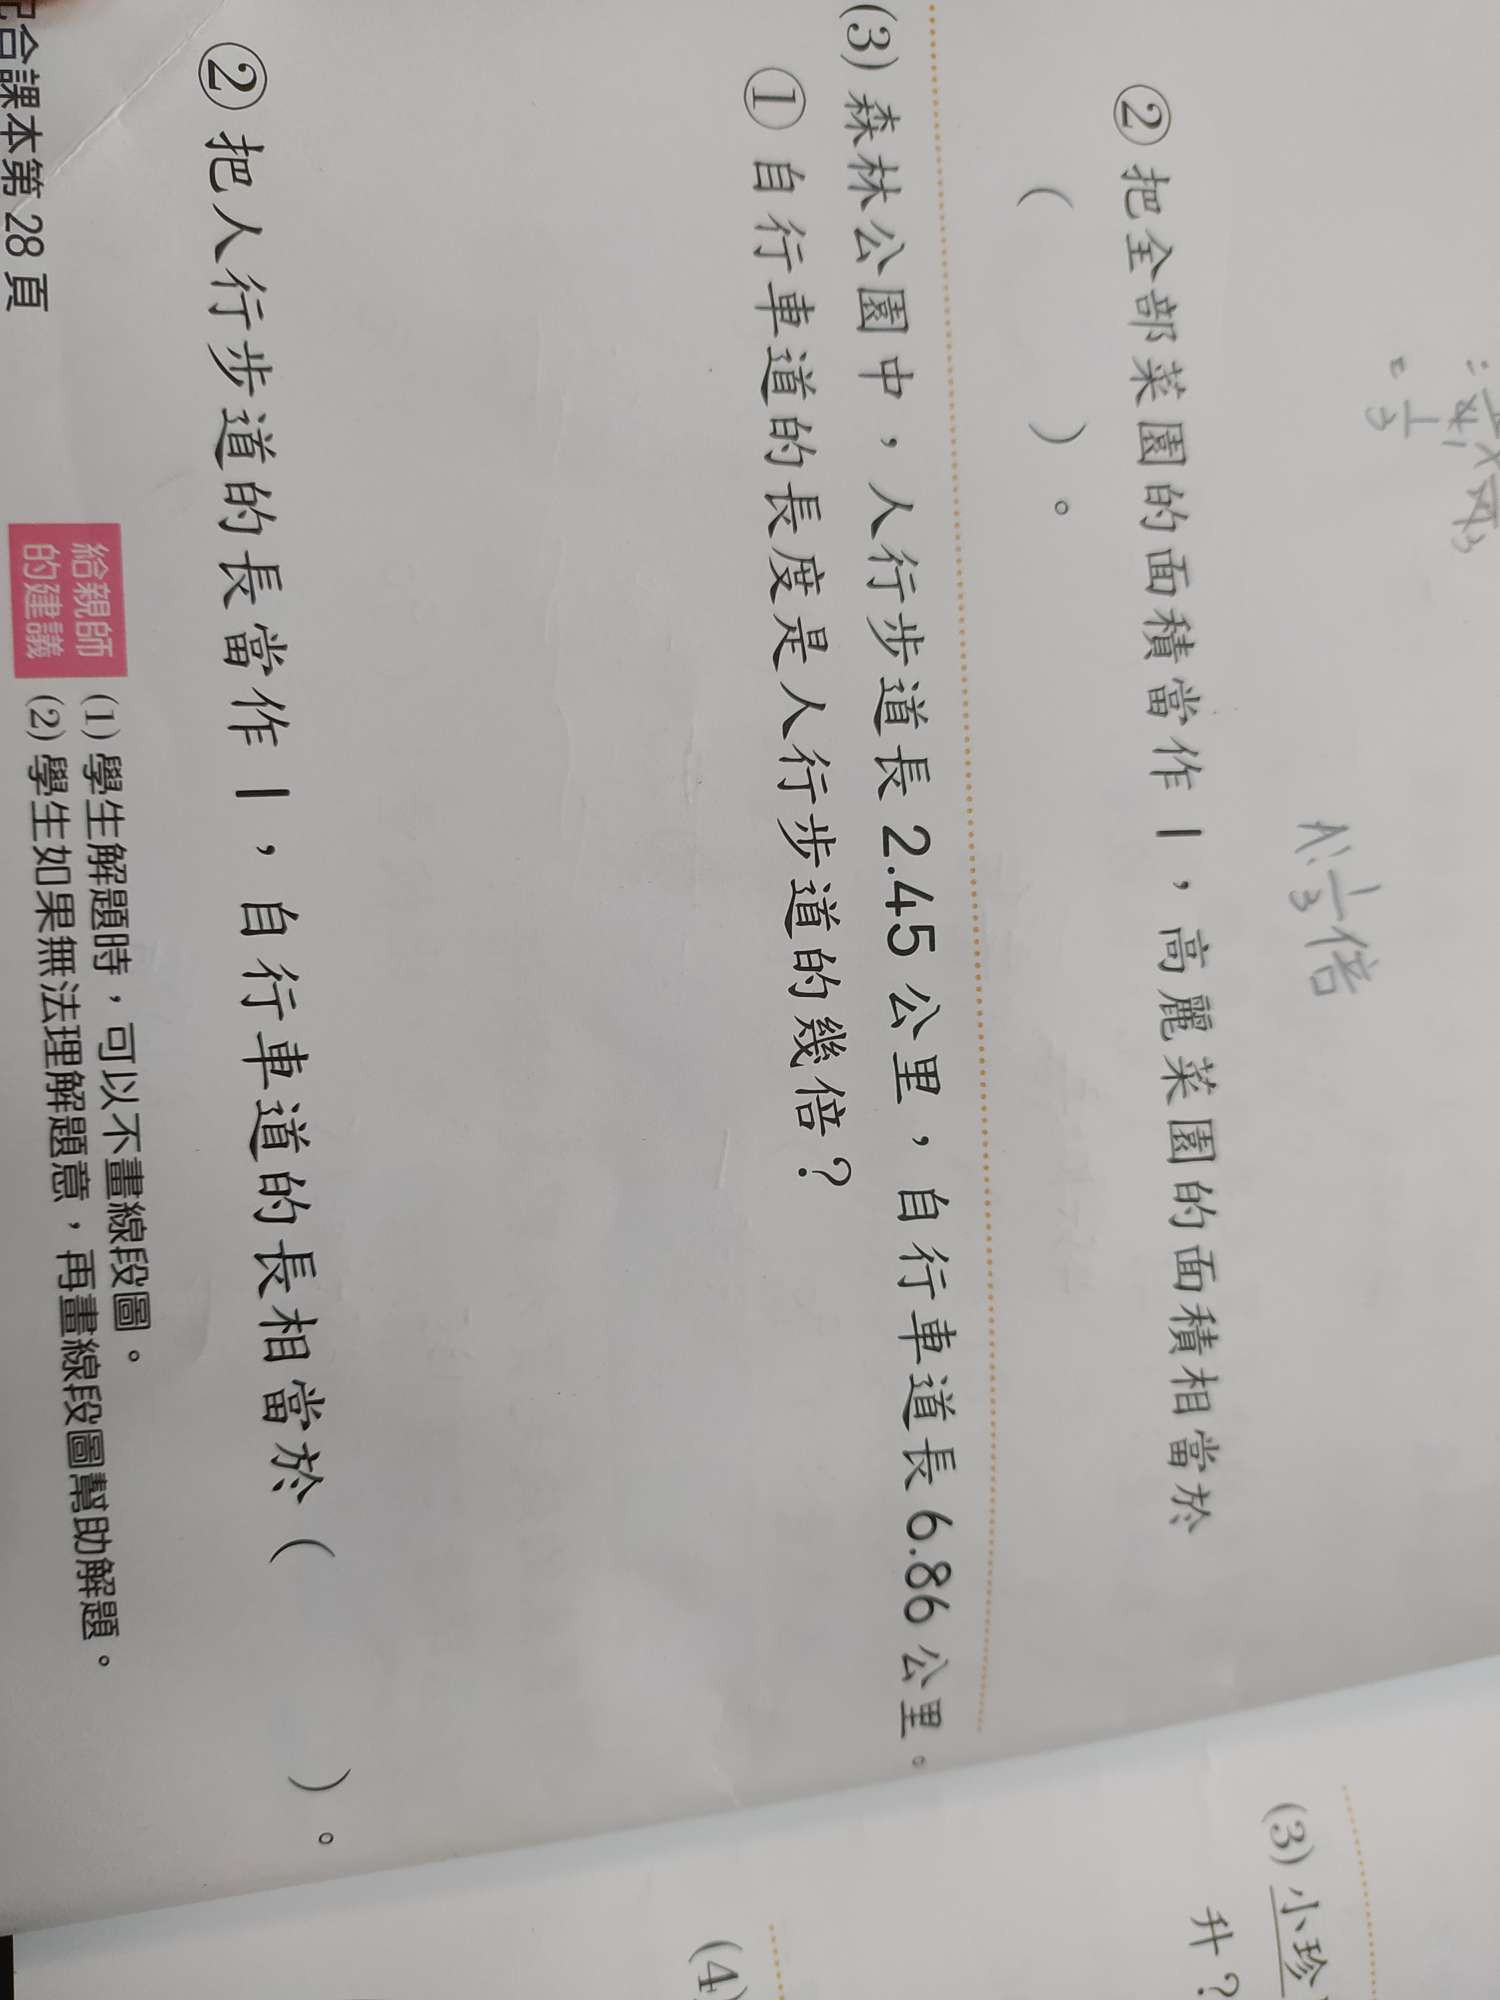 = 1/3
A: 1/3 倍
②把全部菜園的面積當作1，高麗菜園的面積相當於
（　　　）。
(3)森林公園中，人行步道長2.45公里，自行車道長6.86公里。
①自行車道的長度是人行步道的幾倍？
②把人行步道的長當作1，自行車道的長相當於（　　　）。
給親師的建議
(1)學生解題時，可以不畫線段圖。
(2)學生如果無法理解題意，再畫線段圖幫助解題。
合課本第28頁
(3)小珍
升？
(4)